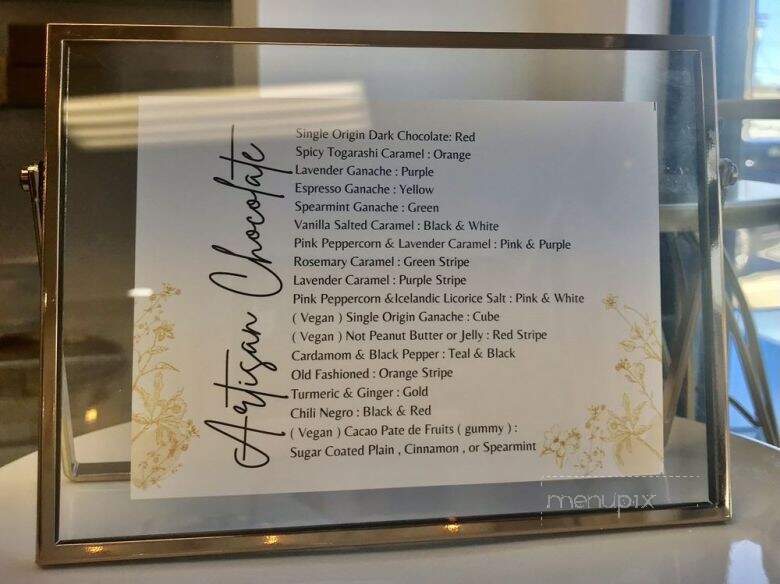 Artisan Chocolate
Single Origin Dark Chocolate: Red
Spicy Togarashi Caramel : Orange
Lavender Ganache : Purple
Espresso Ganache : Yellow
Spearmint Ganache : Green
Vanilla Salted Caramel : Black & White
Pink Peppercorn & Lavender Caramel : Pink & Purple
Rosemary Caramel : Green Stripe
Lavender Caramel : Purple Stripe
Pink Peppercorn &Icelandic Licorice Salt : Pink & White
( Vegan ) Single Origin Ganache : Cube
( Vegan ) Not Peanut Butter or Jelly : Red Stripe
Cardamom & Black Pepper : Teal & Black
Old Fashioned : Orange Stripe
Turmeric & Ginger : Gold
Chili Negro : Black & Red
( Vegan ) Cacao Pate de Fruits ( gummy ) :
Sugar Coated Plain , Cinnamon , or Spearmint
menupix